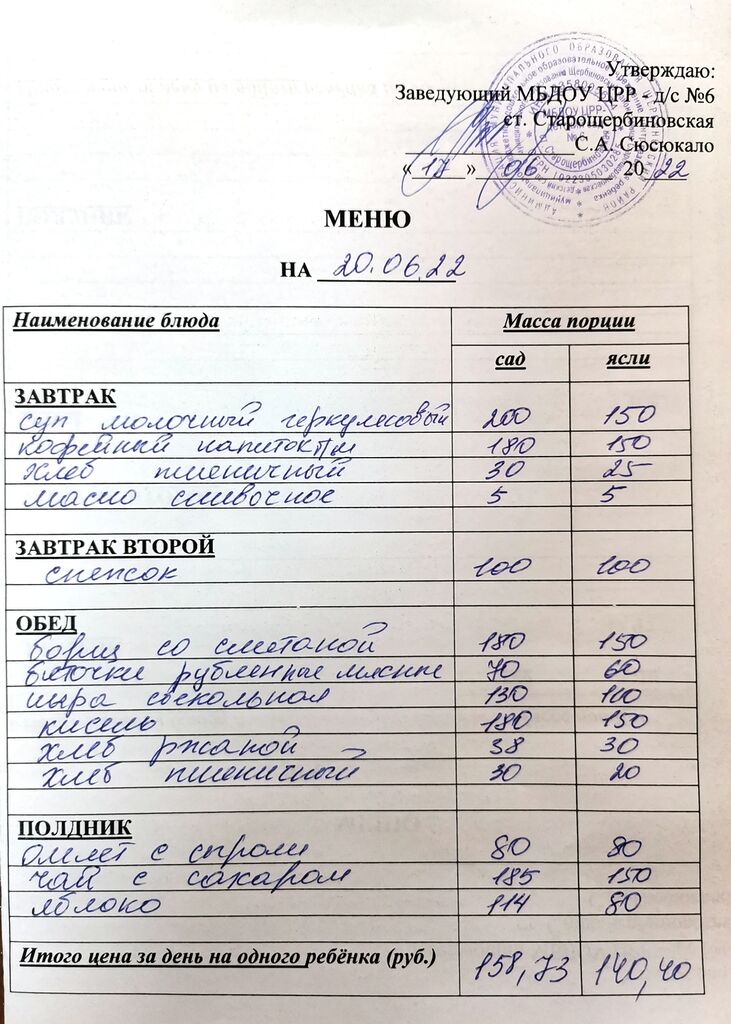 Утверждаю:
Заведующий МБДОУ ЦРР - д/с №6
ст. Старощербиновская
С.А. Сюсюкало
« 17 » 06 2022
МЕНЮ
НА 20.06.22
Наименование блюда Масса порции
сад ясли
ЗАВТРАК
суп молочный геркулесовый 200 150
кофейный напиток 180 150
хлеб пшеничный 30 25
масло сливочное 5 5
ЗАВТРАК ВТОРОЙ
снежок 100 100
ОБЕД
борщ со сметаной 180 150
биточки рубленные мясные 70 60
икра свекольная 130 110
кисель 180 150
хлеб ржаной 38 30
хлеб пшеничный 30 20
ПОЛДНИК
омлет с сыром 80 80
чай с сахаром 185 150
яблоко 114 80
Итого цена за день на одного ребёнка (руб.) 158,73 140,40